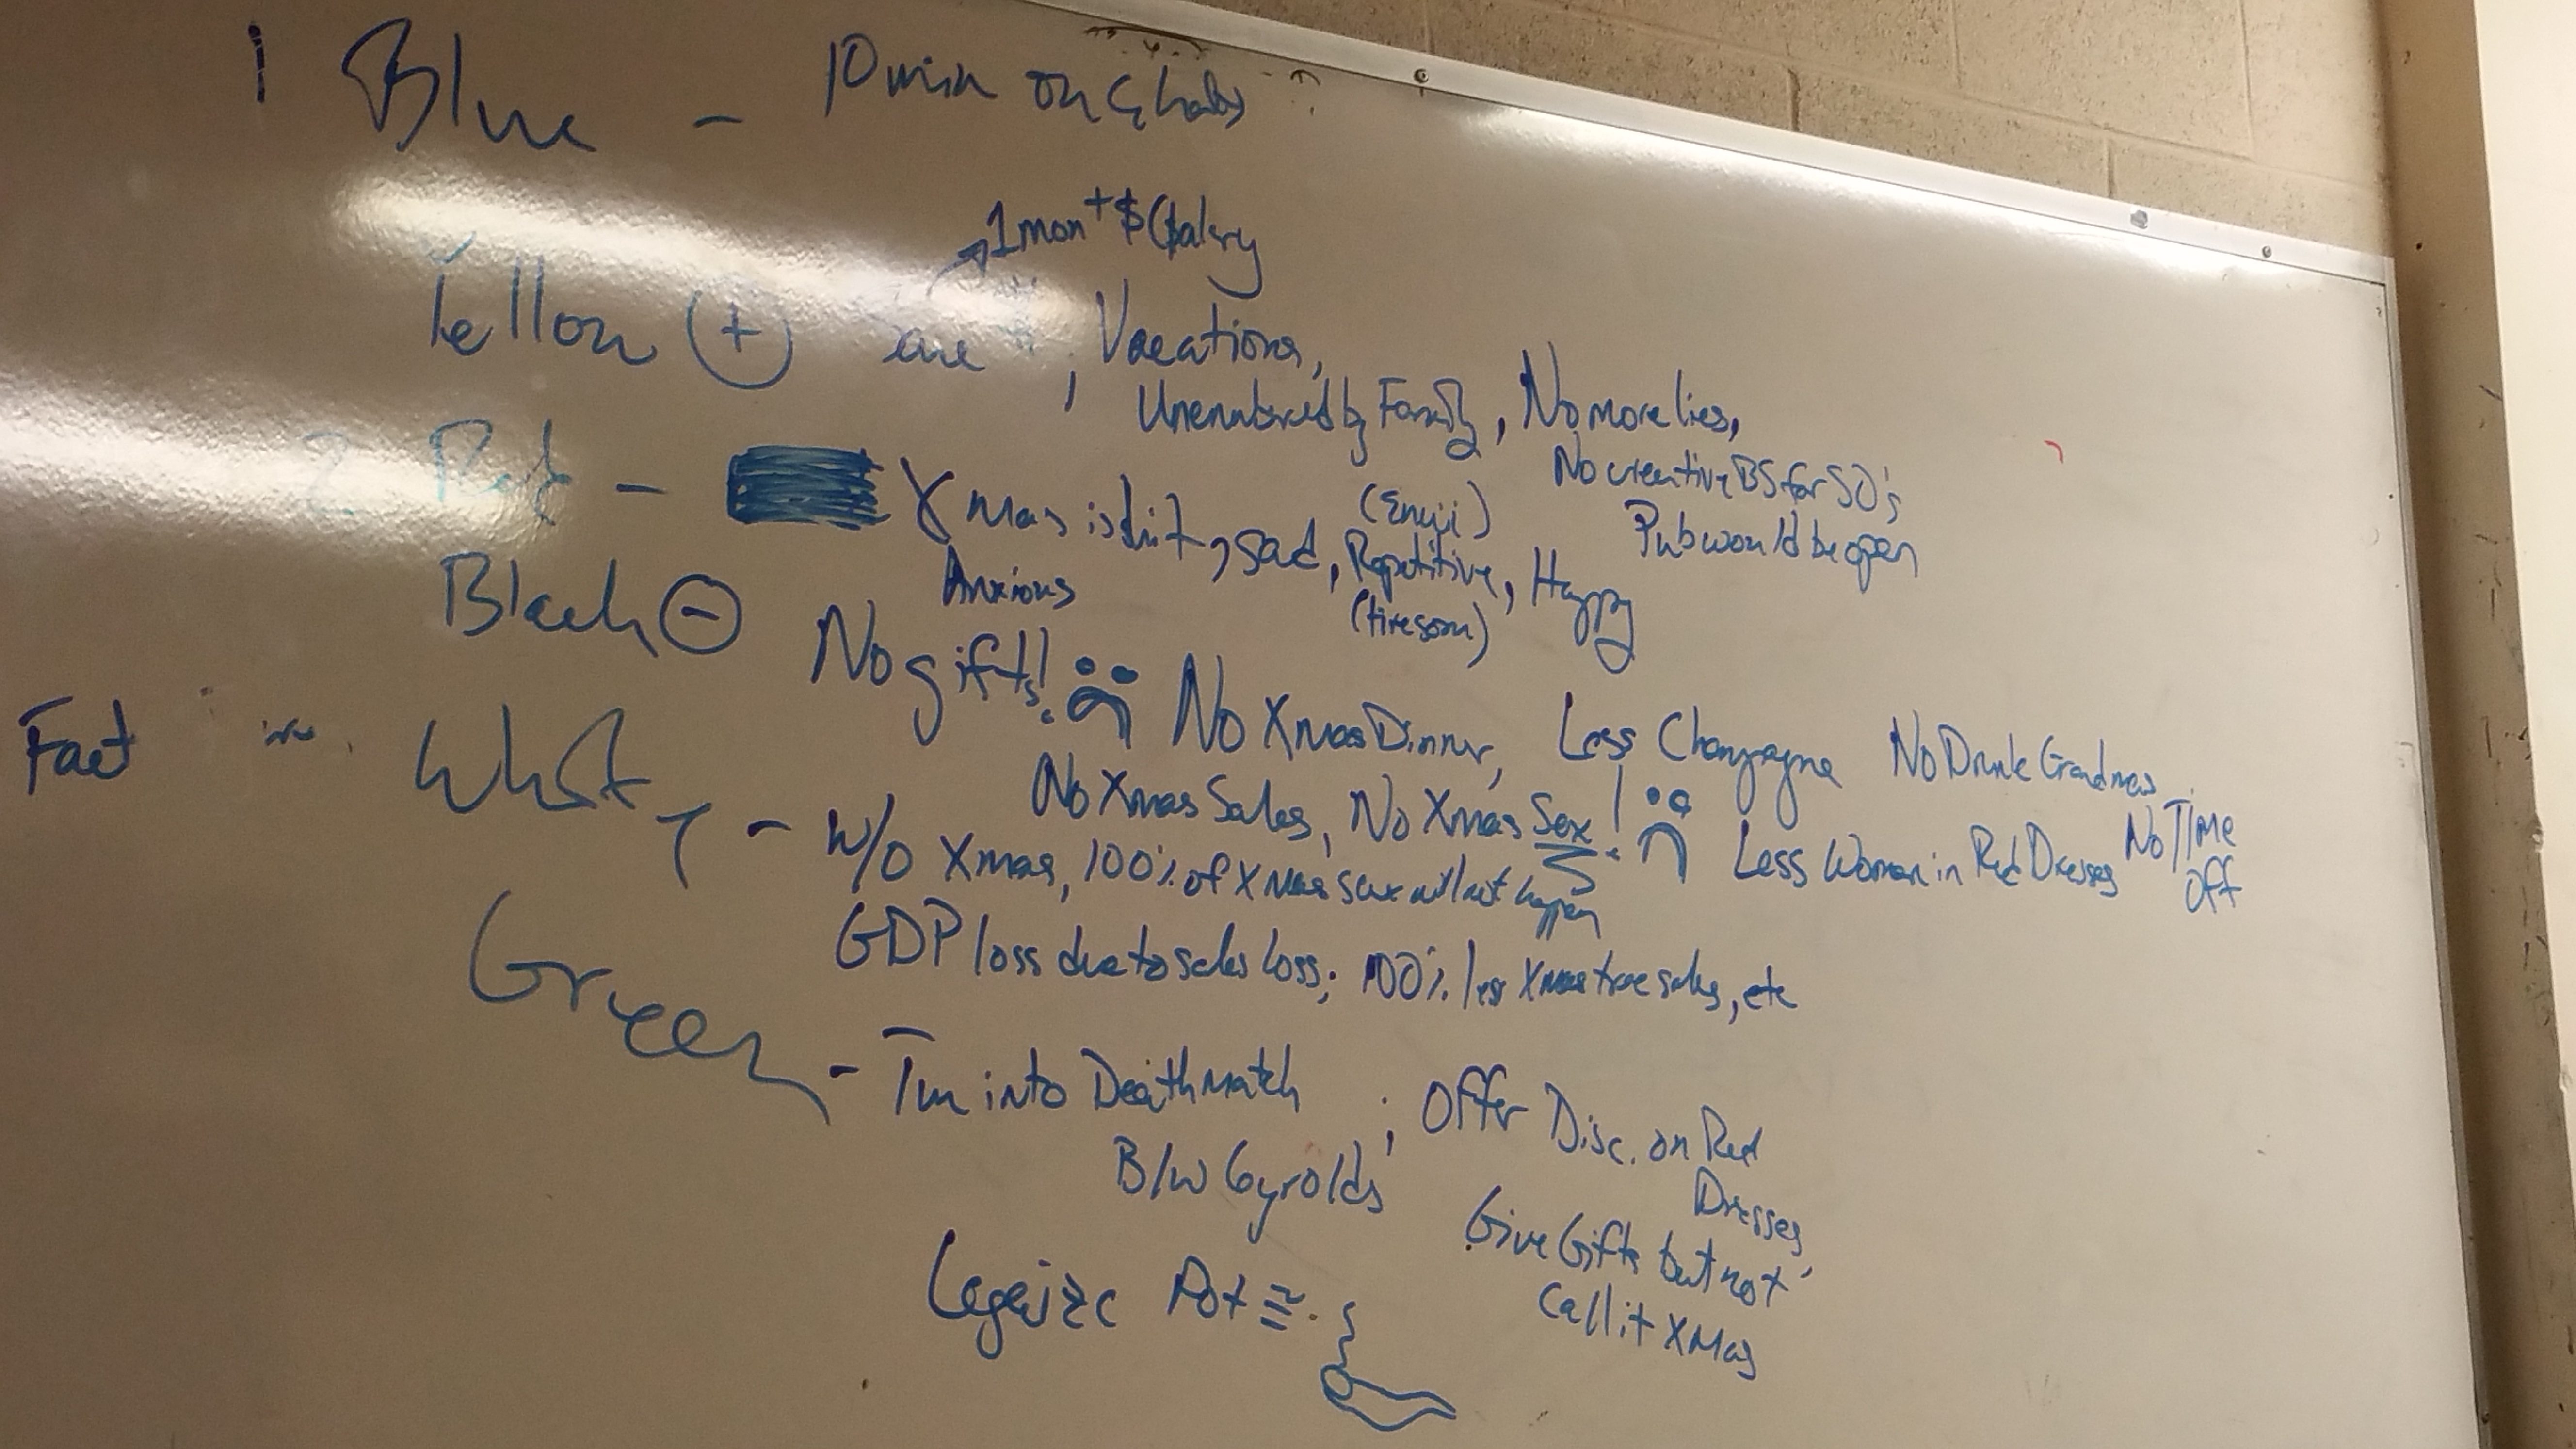 1 Blue - 10 min on
1 mon + $ (Salary
Yellow + Save $, Vacations,
by Family, No more lies,
No creative BS for SO's
Pub would be open
2 Red - Xmas is shit, sad, Repetitive, Happy
Anxious
(tiresom)
Black - No gifts! No Xmas Dinner, Less Champagne No Drunk
No Xmas Sales, No Xmas Sex! Less Women in Red Dresses No Time Off
Fact White - w/o Xmas, 100% of Xmas sex will not happen
GDP loss due to sales loss; 100% less Xmas tree sales, etc
Green - Turn into Deathmatch
B/w 6 yr olds; Offer Disc. on Red Dresses,
Give Gifts but not call it XMas
Legalize Pot